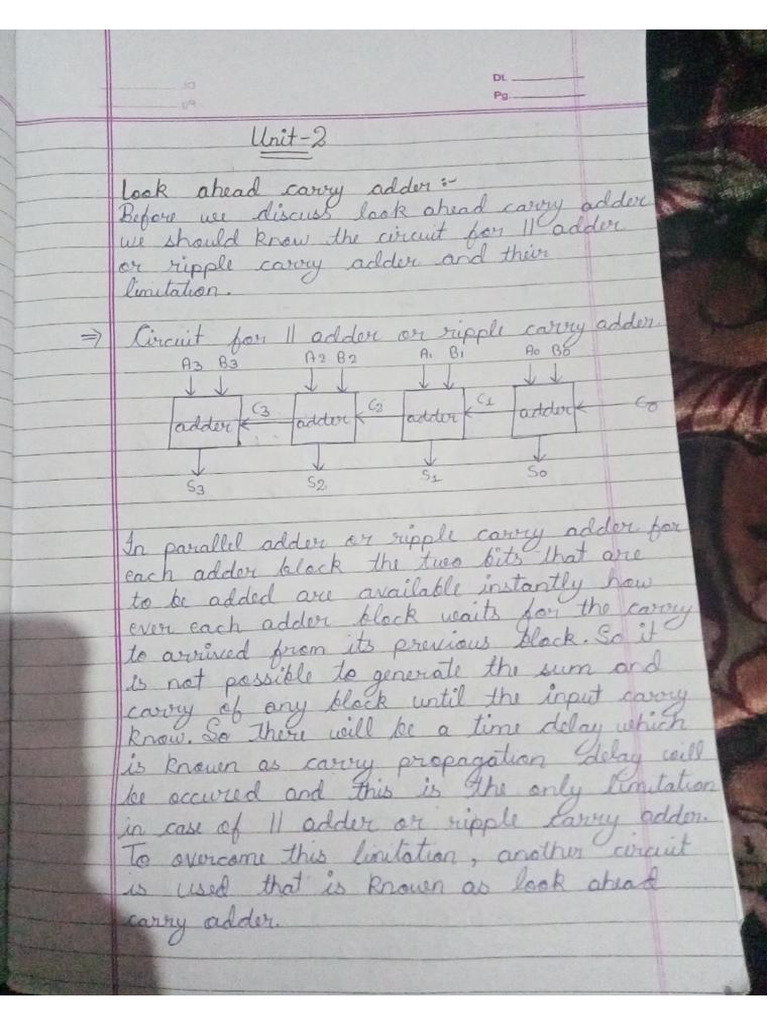 Dt.
Pg.
Unit-2
Look ahead carry adder :-
Before we discuss look ahead carry adder
we should know the circuit for 11 adder
or ripple carry adder and their
limitation.
⇒ Circuit for 11 adder or ripple carry adder.
A3 B3 A2 B2 A1 B1 A0 B0
adder C3 adder C2 adder C1 adder C0
S3 S2 S1 S0
In parallel adder or ripple carry adder for
each adder block the two bits that are
to be added are available instantly how
ever each adder block waits for the carry
to arrived from its previous block. So it
is not possible to generate the sum and
carry of any block until the input carry
know. So There will be a time delay which
is known as carry propagation delay will
be occured and this is the only limitation
in case of 11 adder or ripple carry adder.
To overcome this limitation, another circuit
is used that is known as look ahead
carry adder.